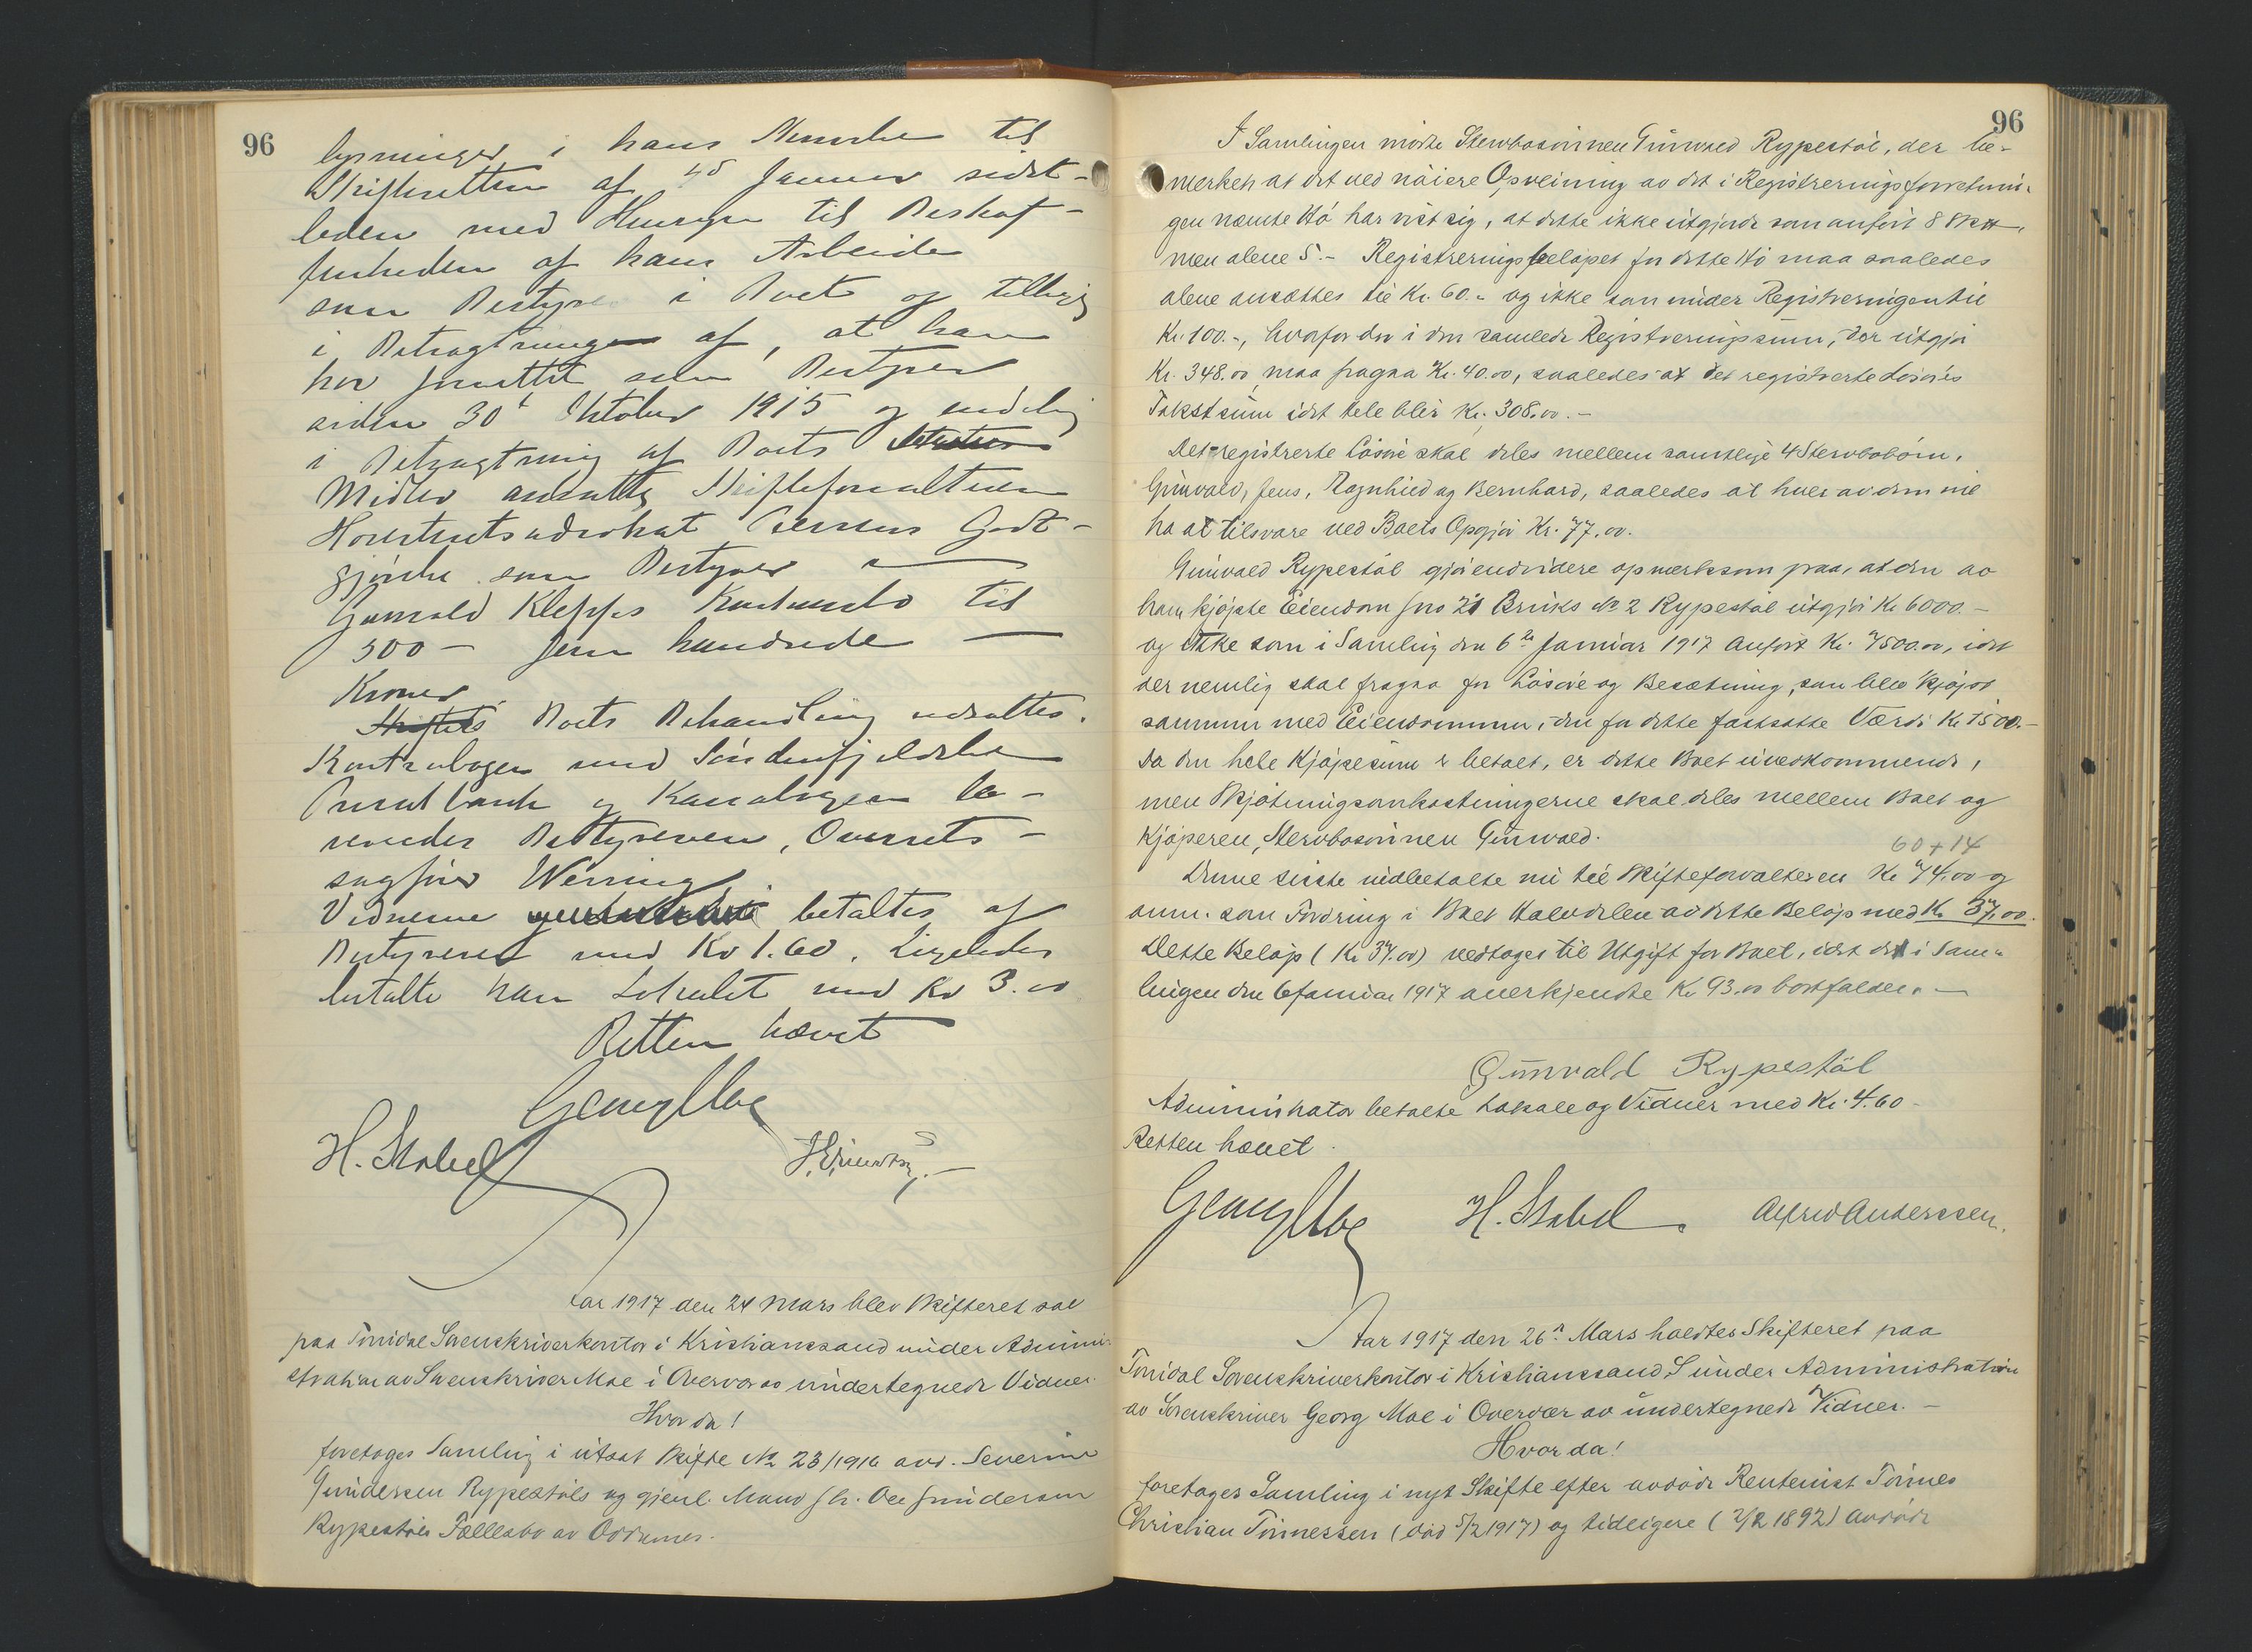 96
lysninger i hans Skrivelse til
Skifteretten af 15 Januar sidst-
leden med Hensyn til Beskaf-
fenheden af hans Arbeide
som Bestyrer i Boet og tillige
i Betragtningen af, at han
har fungeret som Bestyrer
siden 30 Oktober 1915 og endelig
i Betragtning af Boets
Midler ansatte Skifteforvalteren
Godt-
gjørelse som Bestyrer
Gunvald Kleppes Konkursbo til
500 - fem hundrede
Kroner.
Boets Behandling udsattes.
Kontrabogen med Søndenfjeldske
Privatbank og Kassabogen le-
veredes Bestyreren, Overrets-
sagfører Wenning
Vidnerne betaltes af
Bestyreren med Kr 1.60. Ligeledes
betalte han Lokalet med Kr 3.00
Retten hævet
Georg Moe
H. Stabel
Aar 1917 den 24 Mars blev Skifteret sat
paa Torridal Sorenskriverkontor i Kristianssand under Admini-
stration av Sorenskriver Moe i Overvær av undertegnede Vidner.
Hvorda!
foretoges Samling i utsat Skifte No 23/1916 avd. Severine
Gundersen Rypestøls og gjenl. Mand Ole Gundersen
Rypestøls Fællesbo av Oddernes.
96
I Samlingen møtte Stervbosønnen Gunvald Rypestøl, der be-
merket at det ved nøiere Opveining av det i Registreringsforretnin-
gen nævnte Hø har vist sig, at dette ikke utgjorde som anført 8
men alene 5.- Registreringsbeløpet for dette Hø maa saaledes
alene ansættes til Kr. 60.- og ikke som under Registreringen til
Kr. 100.-, hvorfor der i den samlede Registreringssum, der utgjør
Kr. 348.00 maa fragaa Kr. 40.00, saaledes at det registrerte Løsøres
Takstsum i det hele blir Kr. 308.00.-
Det registrerte Løsøre skal deles mellem samtlige 4 Stervbobørn,
Gunvald, Jens, Ragnhild og Bernhard, saaledes at hver av dem vil
ha at tilsvare ved Boets Opgjør Kr. 77.00.
Gunvald Rypestøl gjør endvidere opmerksom paa, at den av
ham kjøpte Eiendom Gno 21 Bruks No 2 Rypestøl utgjør Kr 6000.-
og ikke som i Samling den 6te Januar 1917 anført Kr. 7500.00, idet
der nemlig skal fragaa for Løsøre og Besætning, som blev kjøpt
sammen med Eiendommen, den for dette fastsatte Værdi Kr 1500.-
Da den hele Kjøpesum er betalt, er dette Boet uvedkommende,
men Skjøtningsomkostningerne skal deles mellem Boet og
Kjøperen, Stervbosønnen Gunvald.
60 + 14
Denne siste indbetalte nu til Skifteforvalteren Kr 74.00 og
anm. som Fordring i Boet Halvdelen av dette Beløp med Kr 37.00.
Dette Beløp (Kr 37.00) vedtoges til Utgift for Boet, idet de i Sam-
lingen den 6 Januar 1917 anerkjendte Kr 93.00 bortfalder.-
Gunvald Rypestøl
Administrator betalte Lokale og Vidner med Kr. 4.60
Retten hævet.
Georg Moe H. Stabel Alfred Anderssen.
Aar 1917 den 26n Mars holdtes Skifteret paa
Torridal Sorenskriverkontor i Kristianssand S under Administration
av Sorenskriver Georg Moe i Overvær av undertegnede Vidner.-
Hvorda!
foretoges Samling i nyt Skifte efter avdøde Rentenist Tønnes
Christian Tønnessen (død 5/2 1917) og tidligere (2/2 1892) avdøde